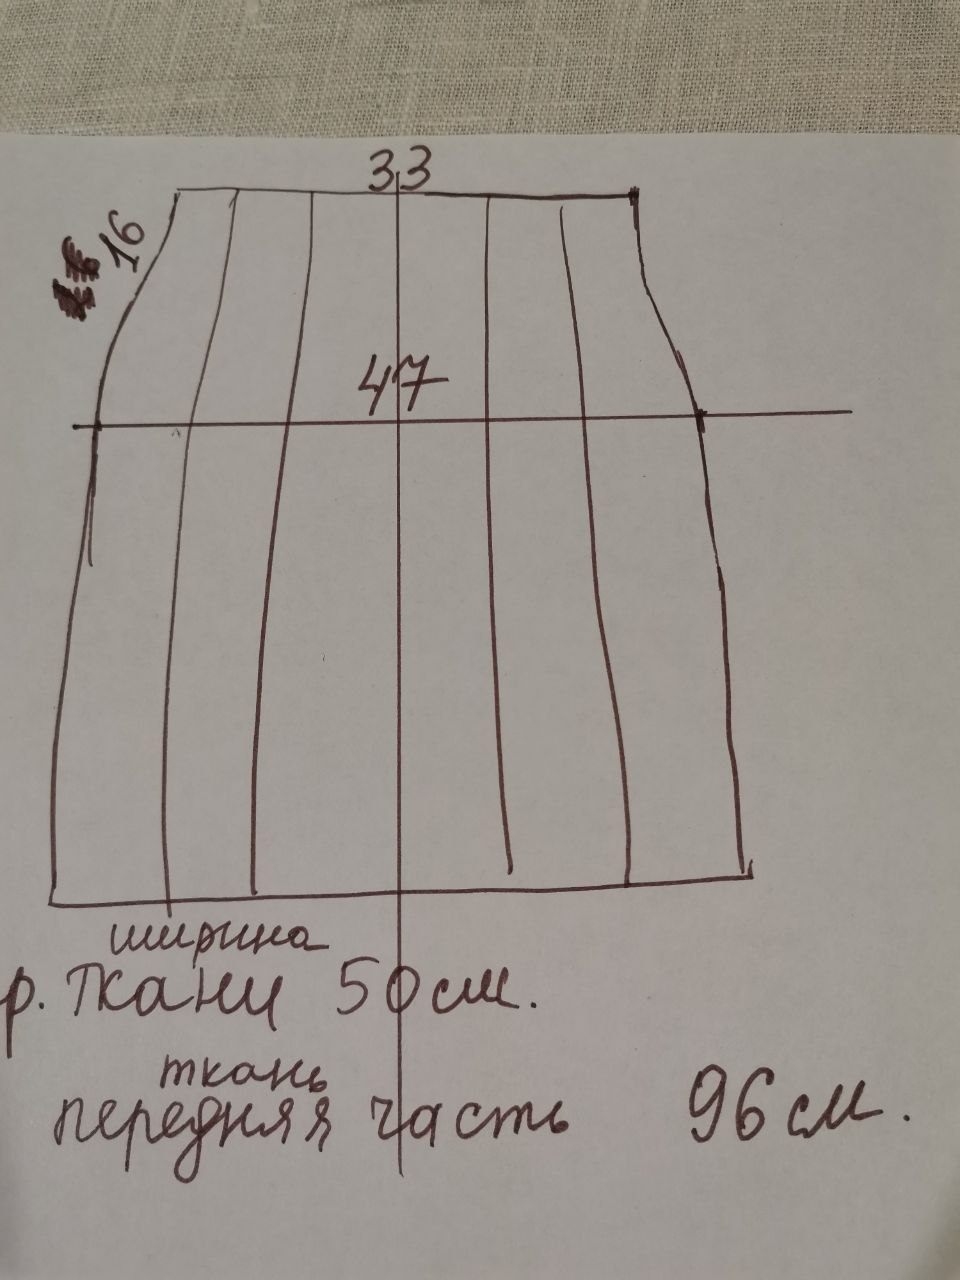 33
16
47
ширина
р. ткани 50 см.
ткань
передняя часть 96 см.